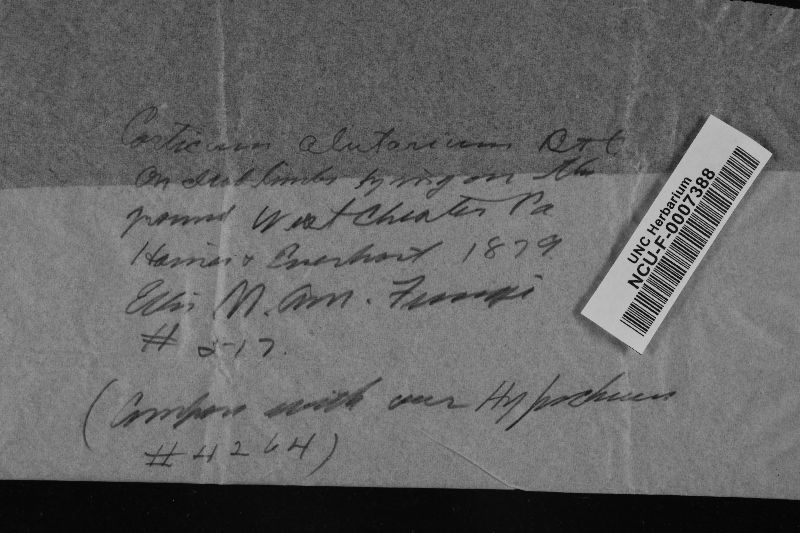 Corticium alutarium B+C
On dead limbs lying on the
ground West Chester Pa
Haines & Everhart 1879
Ellis N. Am. Fungi
# 517.
(Compare with our Hypochnus
# 4264)
UNC Herbarium
NCU-F-0007388